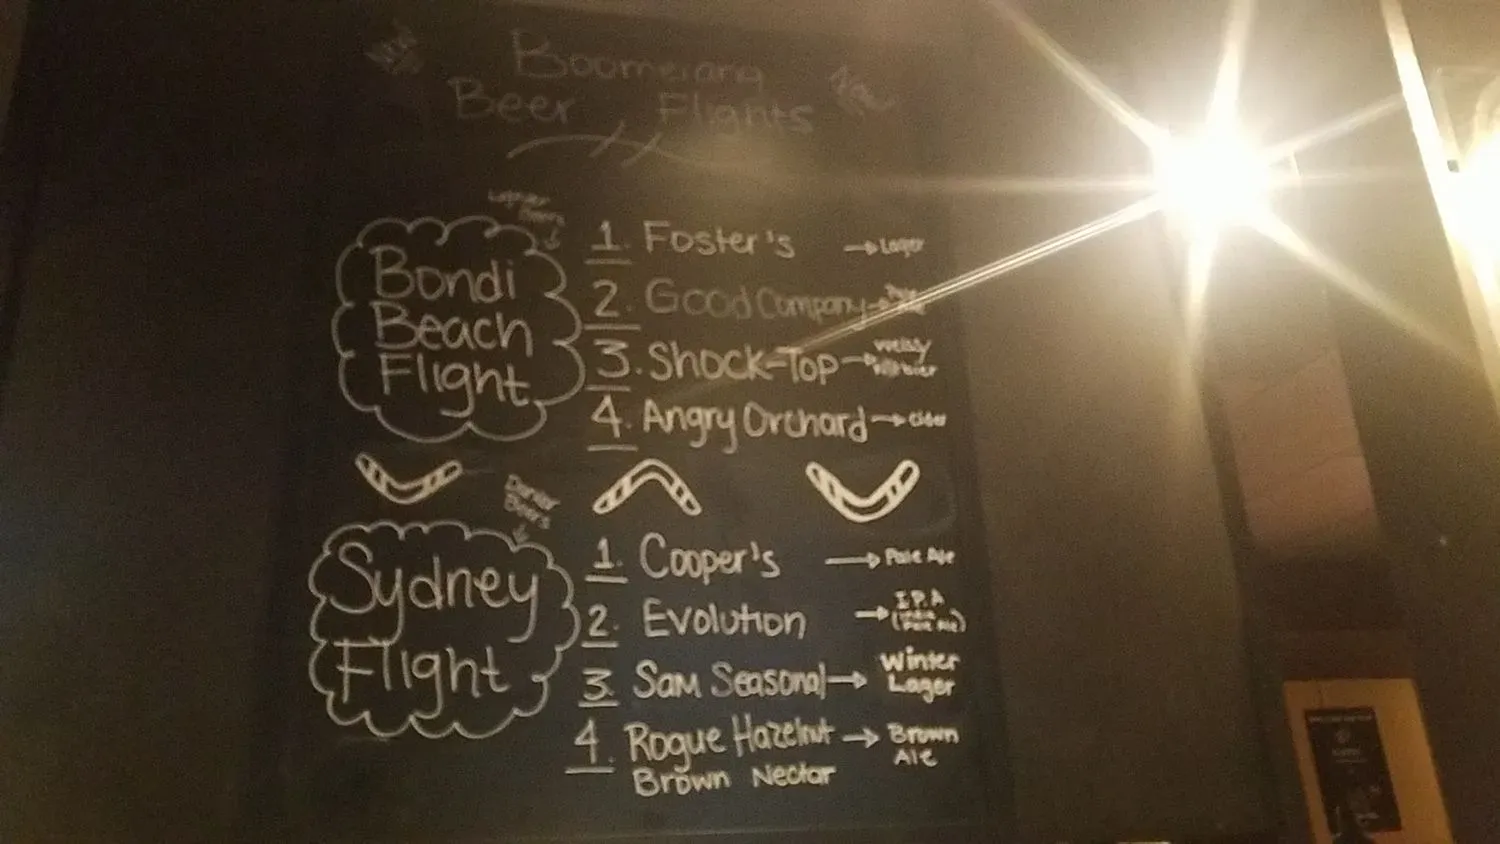 New
Boomerang
Beer Flights
Lighter
Beers
Bondi
Beach
Flight
1. Foster's → Lager
2. Good Company →
3. Shock-Top → 
4. Angry Orchard → Cider
Darker
Beers
Sydney
Flight
1. Cooper's → Pale Ale
2. Evolution → I.P.A
(India
Pale Ale)
3. Sam Seasonal → Winter
Lager
4. Rogue Hazelnut → Brown
Ale
Brown Nectar